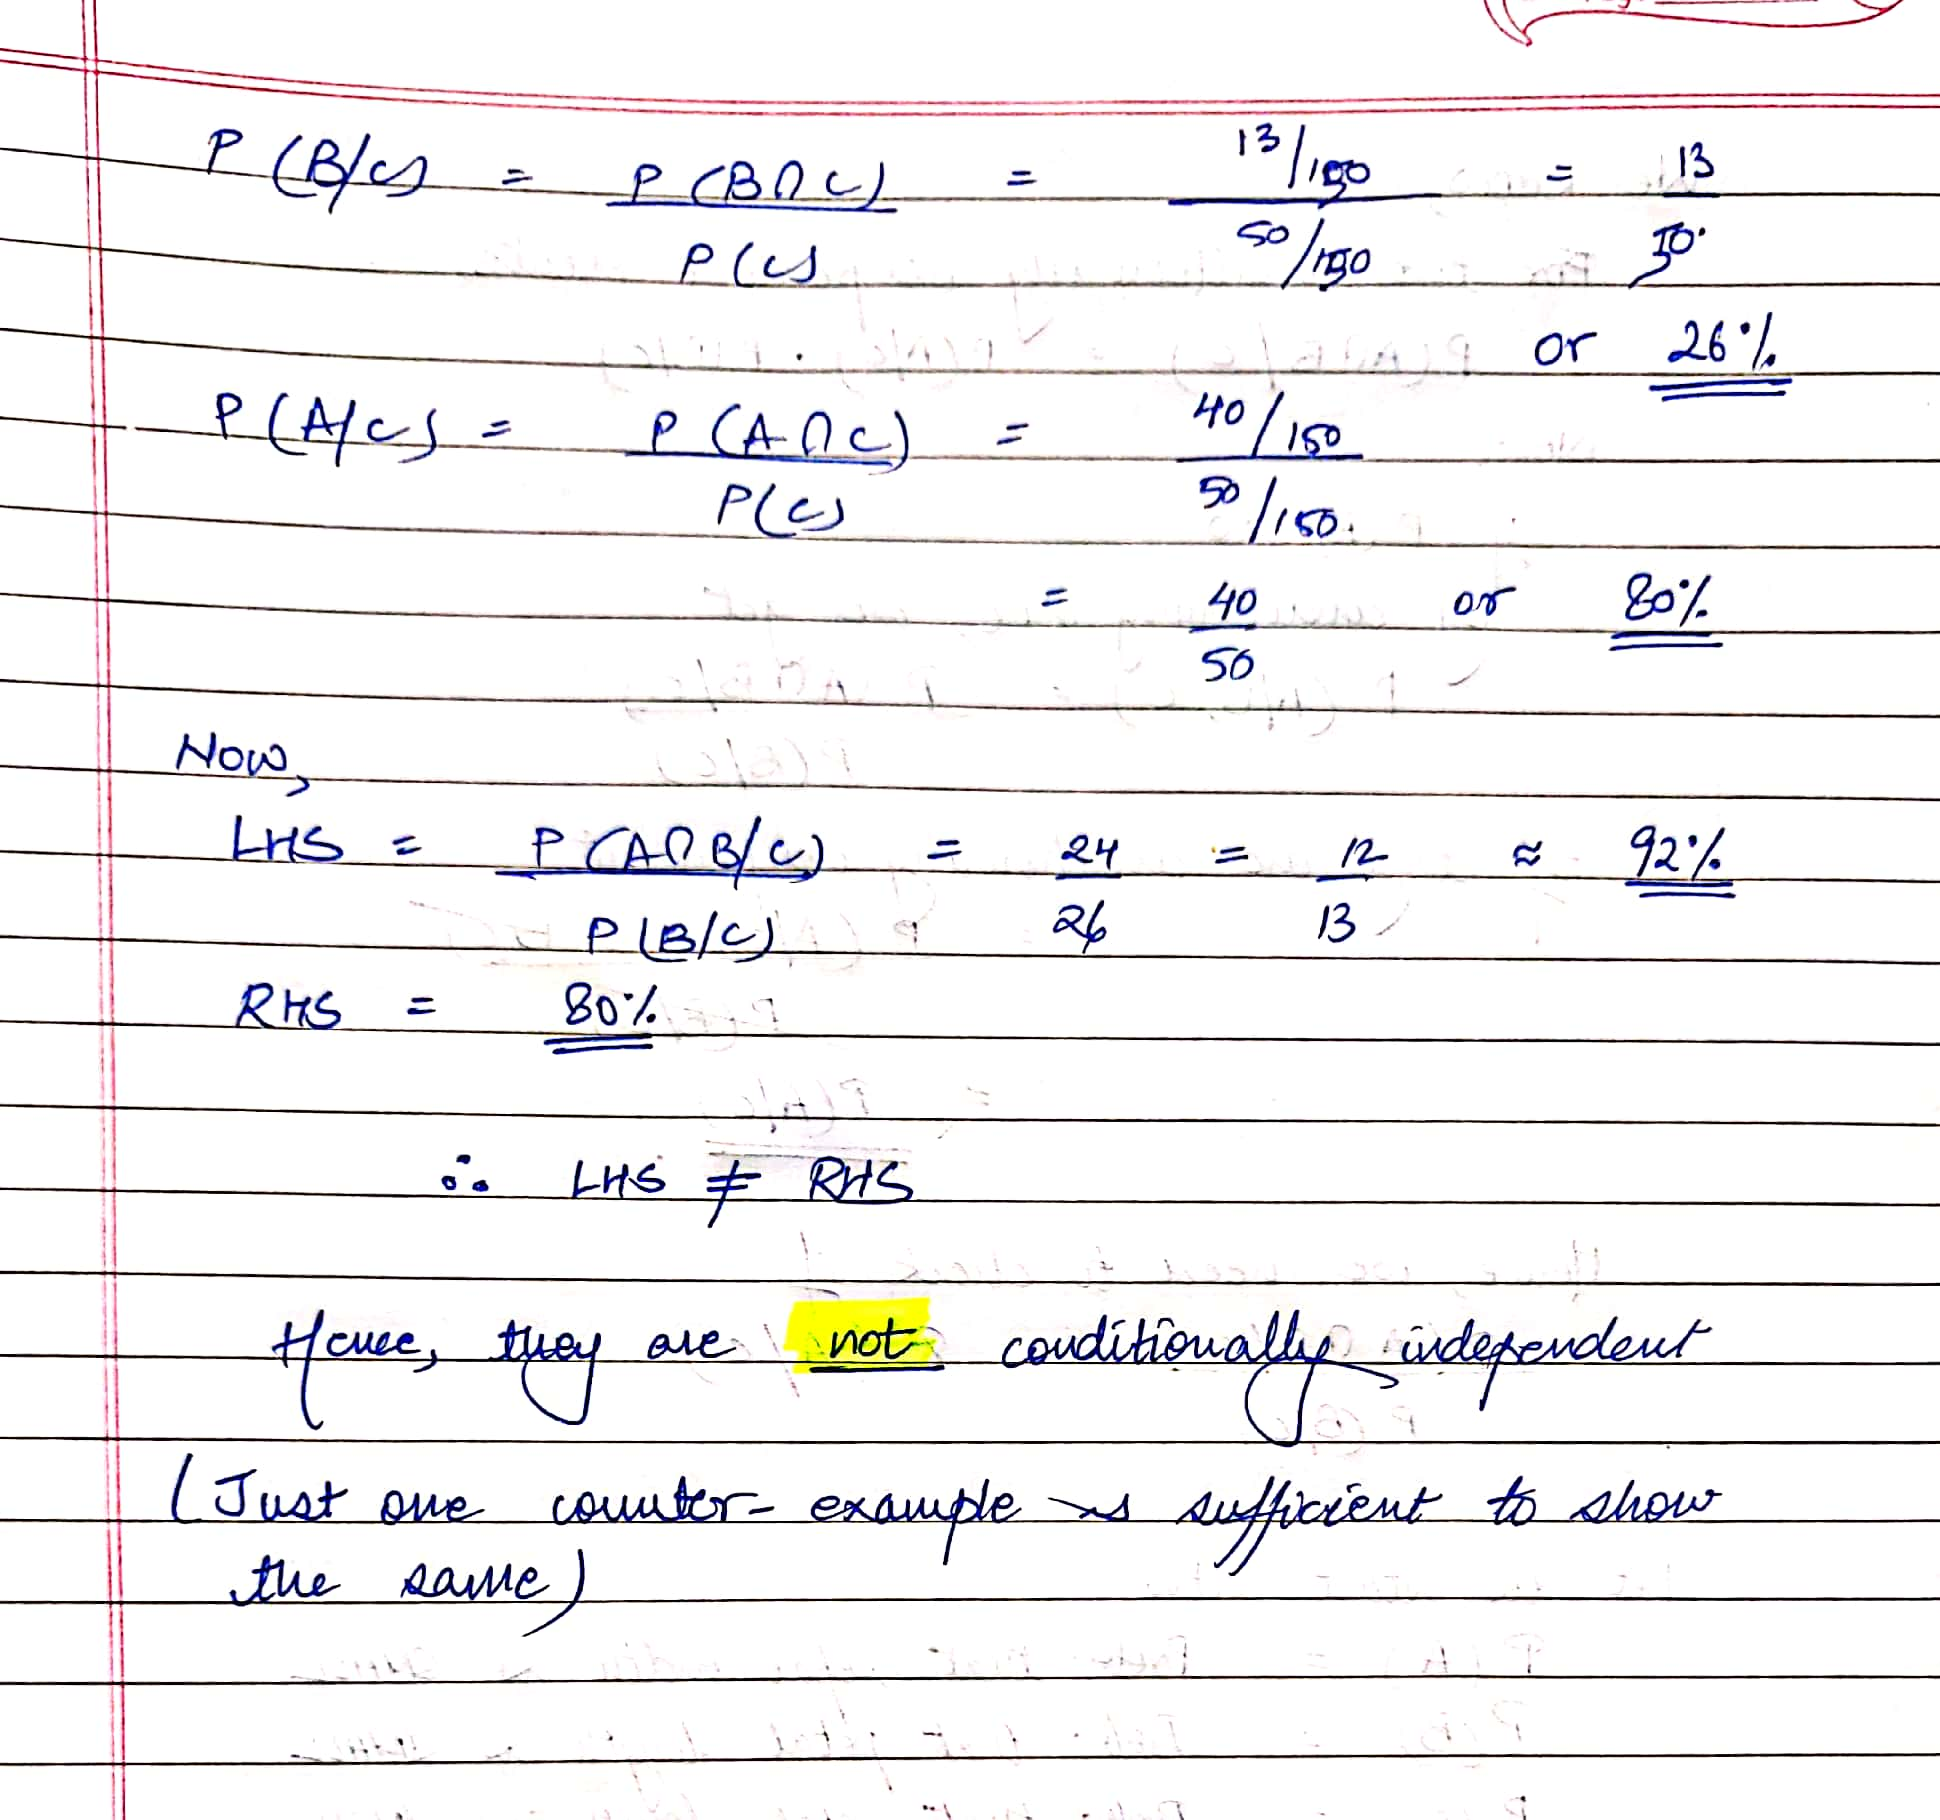 P(B/C) = P(B∩C) / P(C) = 13/150 / 50/150 = 13/50
or 26%
P(A/C) = P(A∩C) / P(C) = 40/150 / 50/150.
= 40/50 or 80%
Now,
LHS = P(A∩B/C) / P(B/C) = 24/26 = 12/13 ≈ 92%
RHS = 80%
∴ LHS ≠ RHS
Hence, they are not conditionally independent
(Just one counter-example is sufficient to show
the same)